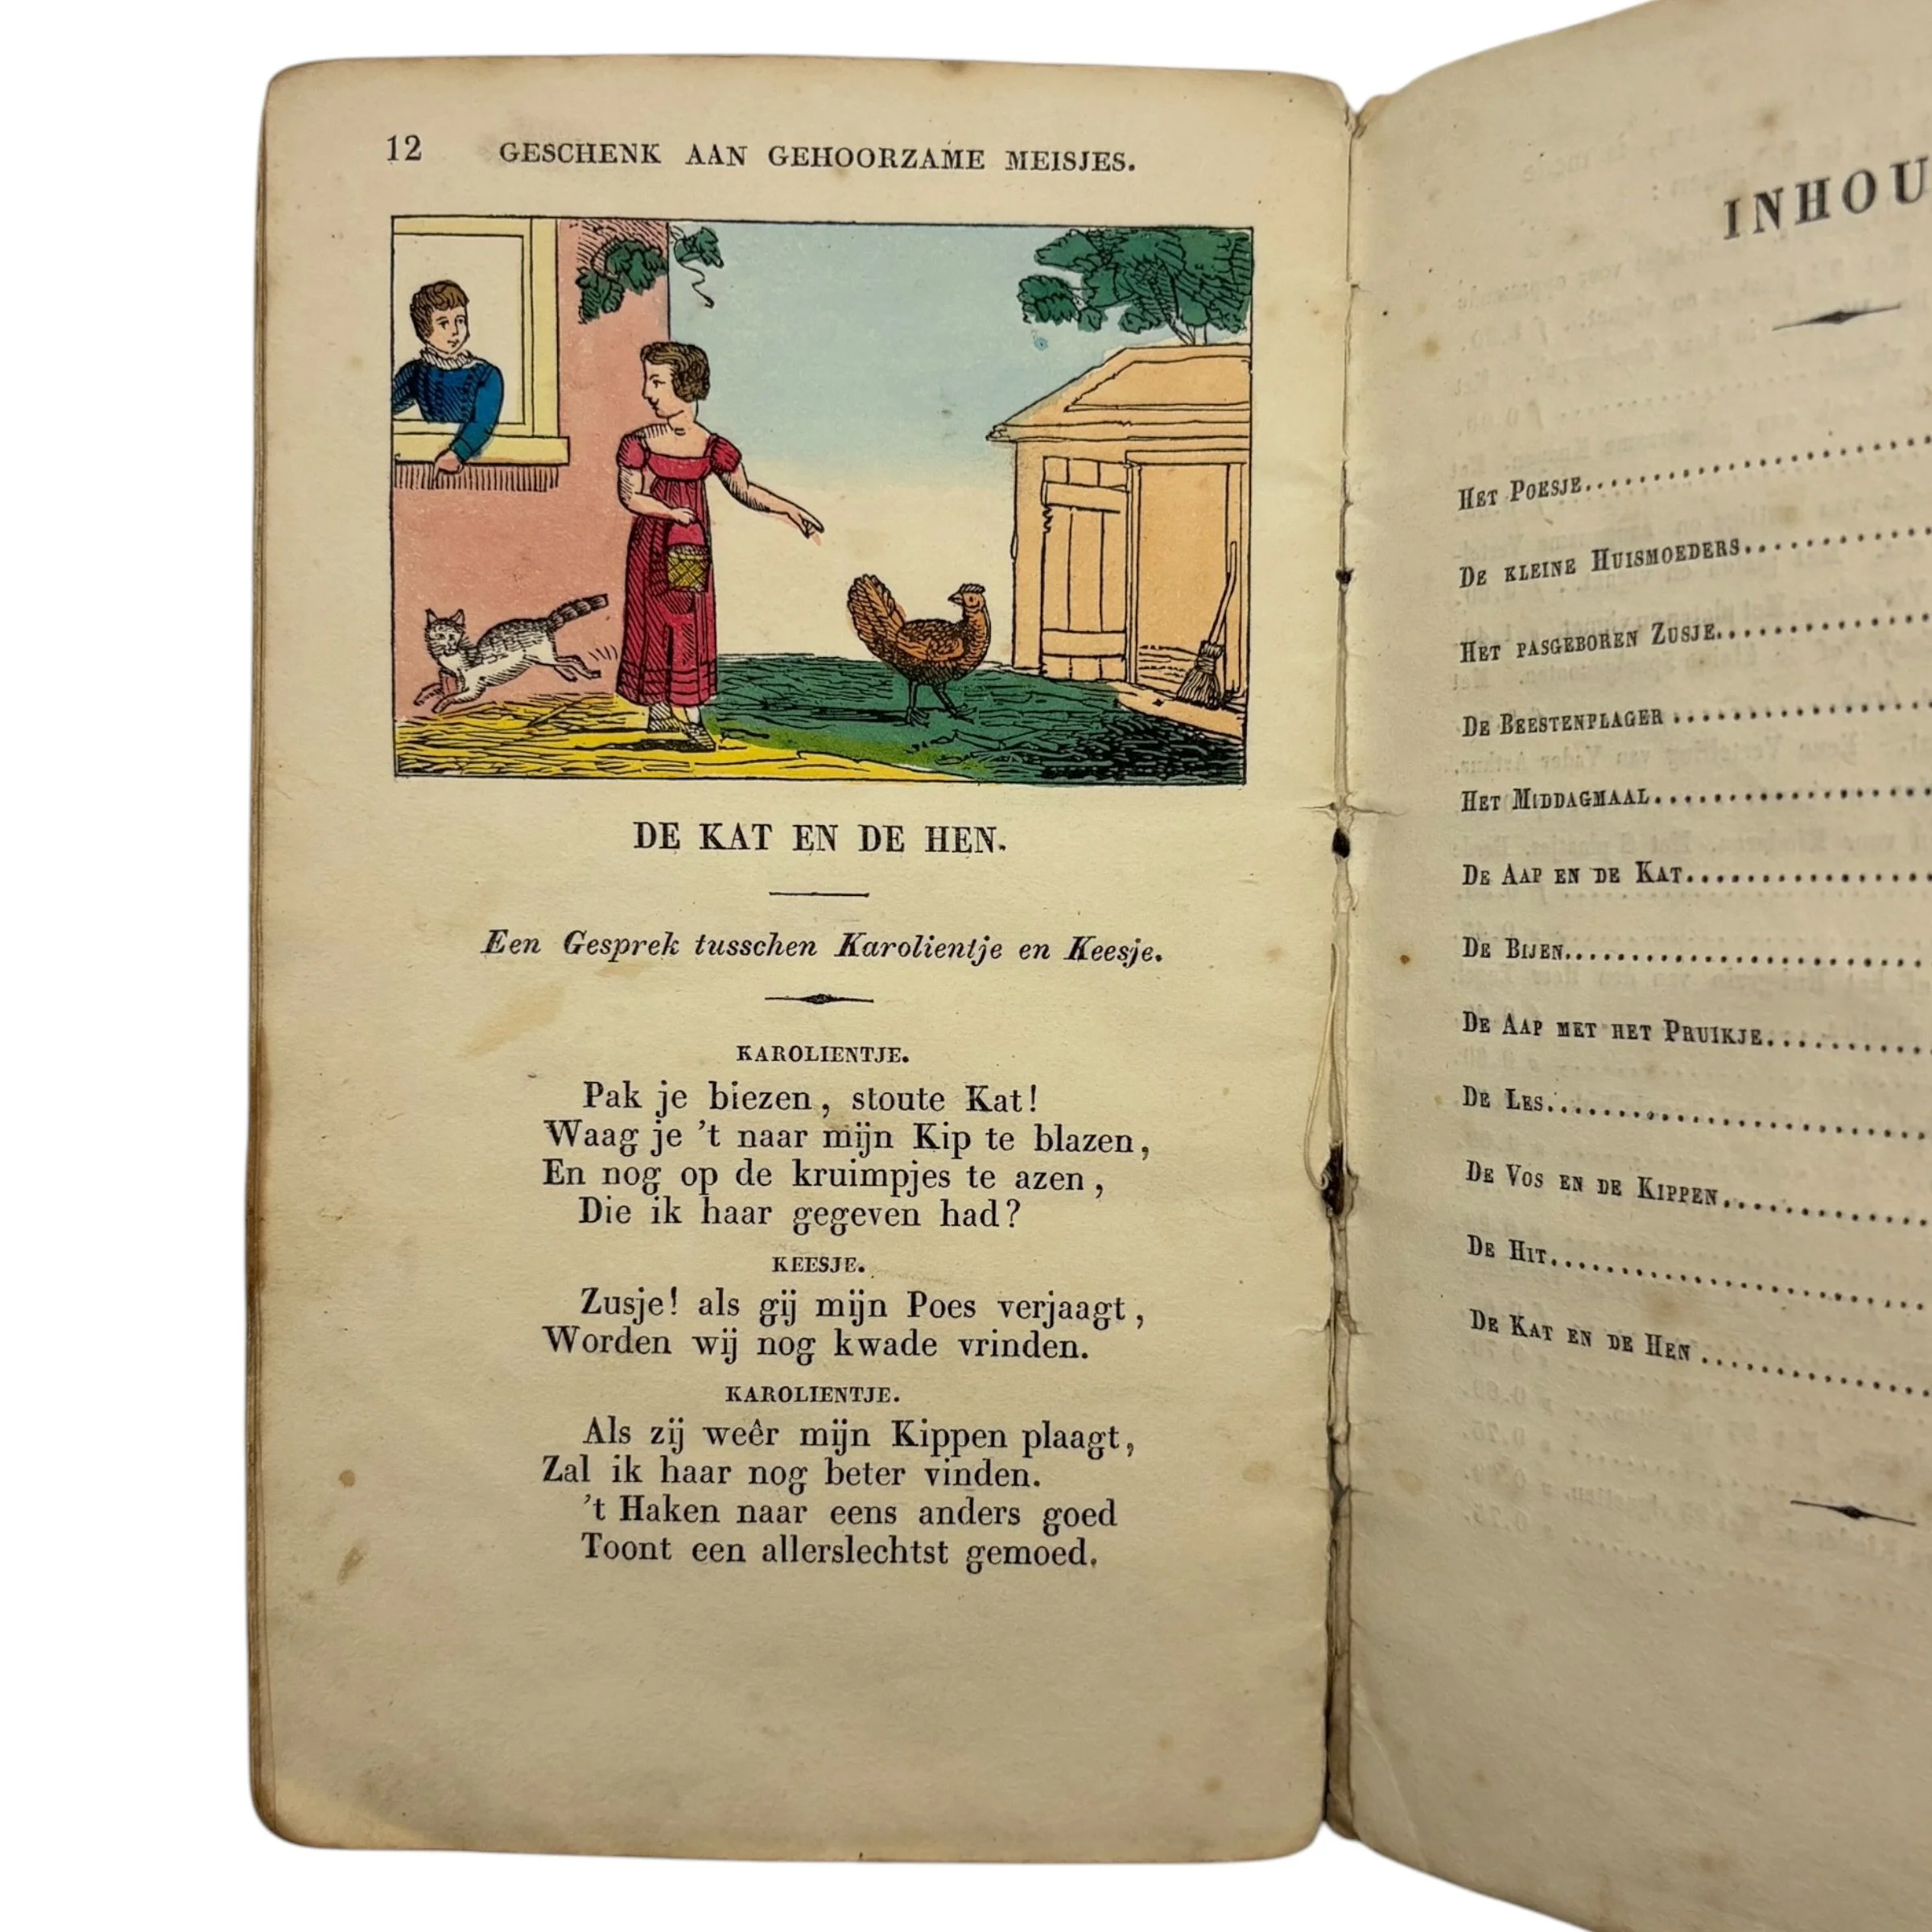 12 GESCHENK AAN GEHOORZAME MEISJES.
DE KAT EN DE HEN.
Een Gesprek tusschen Karolientje en Keesje.
KAROLIENTJE.
Pak je biezen, stoute Kat!
Waag je 't naar mijn Kip te blazen,
En nog op de kruimpjes te azen,
Die ik haar gegeven had?
KEESJE.
Zusje! als gij mijn Poes verjaagt,
Worden wij nog kwade vrinden.
KAROLIENTJE.
Als zij weêr mijn Kippen plaagt,
Zal ik haar nog beter vinden.
't Haken naar eens anders goed
Toont een allerslechtst gemoed.
INHOU
HET POESJE
DE KLEINE HUISMOEDERS
HET PASGEBOREN ZUSJE
DE BEESTENPLAGER
HET MIDDAGMAAL
DE AAP EN DE KAT
DE BIJEN
DE AAP MET HET PRUIKJE
DE LES
DE VOS EN DE KIPPEN
DE HIT
DE KAT EN DE HEN